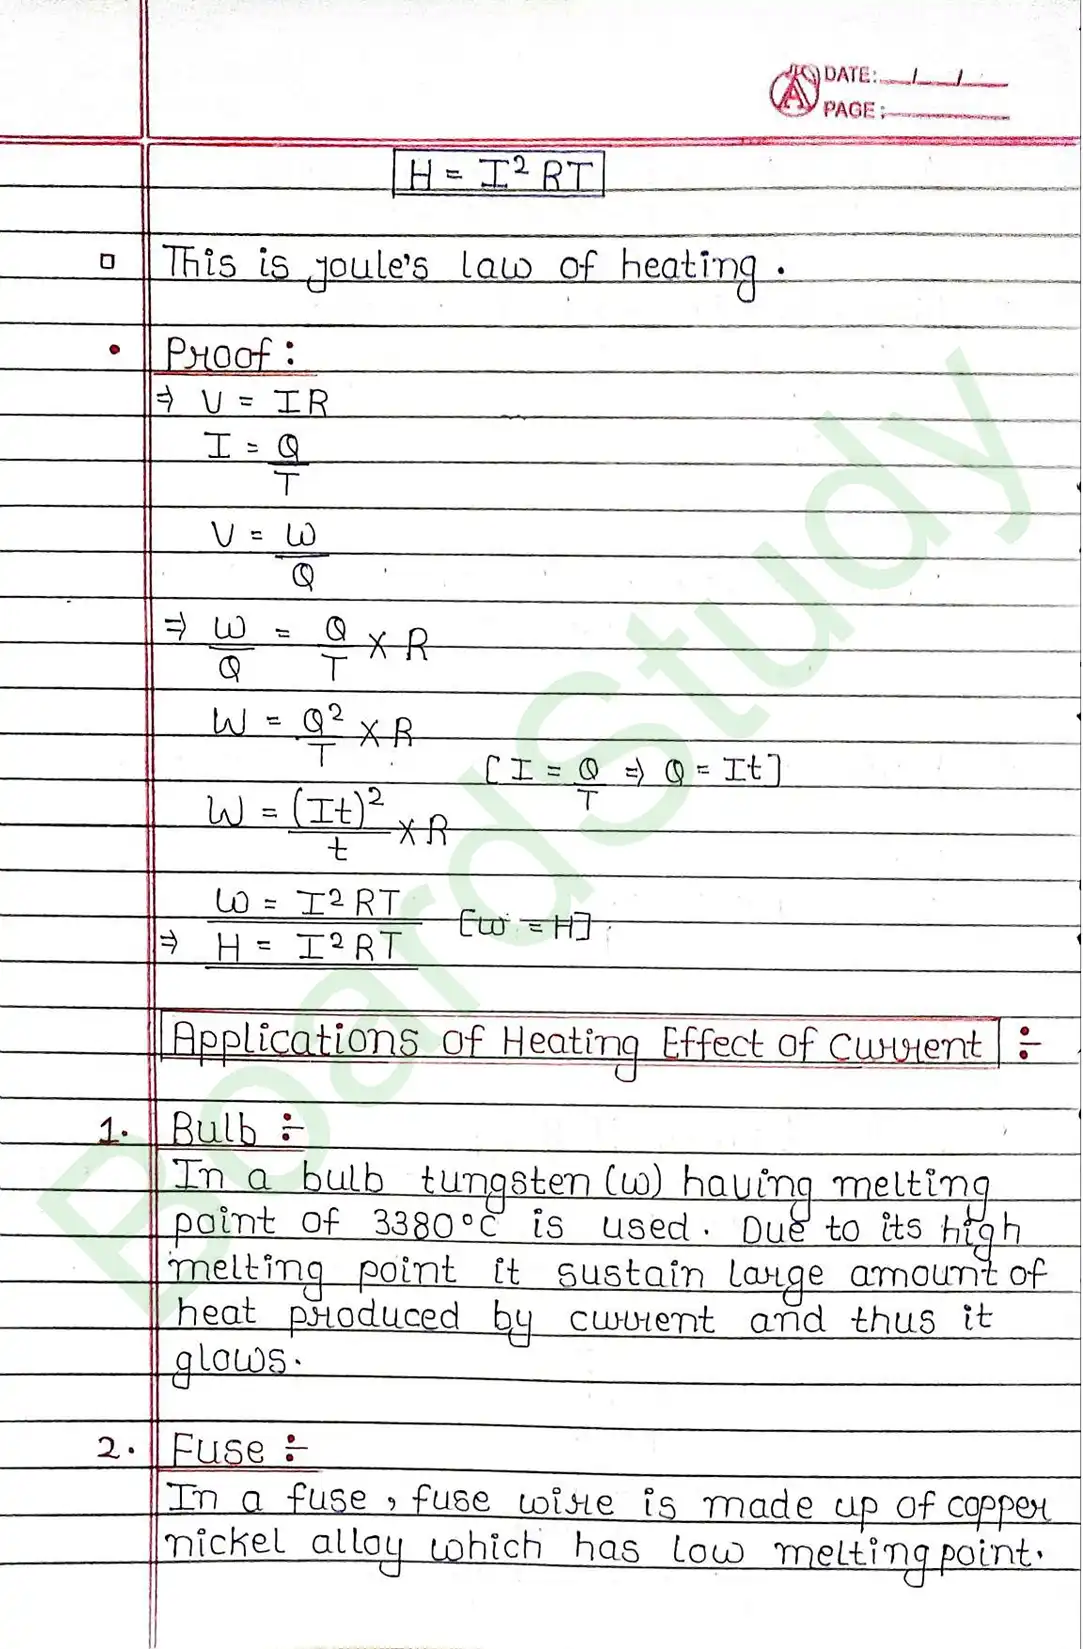 DATE: / /
PAGE:
H = I² RT
▫ This is joule's law of heating.
• Proof:
⇒ V = IR
I = Q/T
V = W/Q
⇒ W/Q = Q/T × R
W = Q²/T × R
[I = Q/T ⇒ Q = It]
W = (It)²/t × R
W = I² RT [W = H]
⇒ H = I² RT
Applications of Heating Effect of Current :-
1. Bulb :-
In a bulb tungsten (W) having melting
point of 3380°C is used. Due to its high
melting point it sustain large amount of
heat produced by current and thus it
glows.
2. Fuse :-
In a fuse, fuse wire is made up of copper
nickel alloy which has low melting point.
BoardStudy